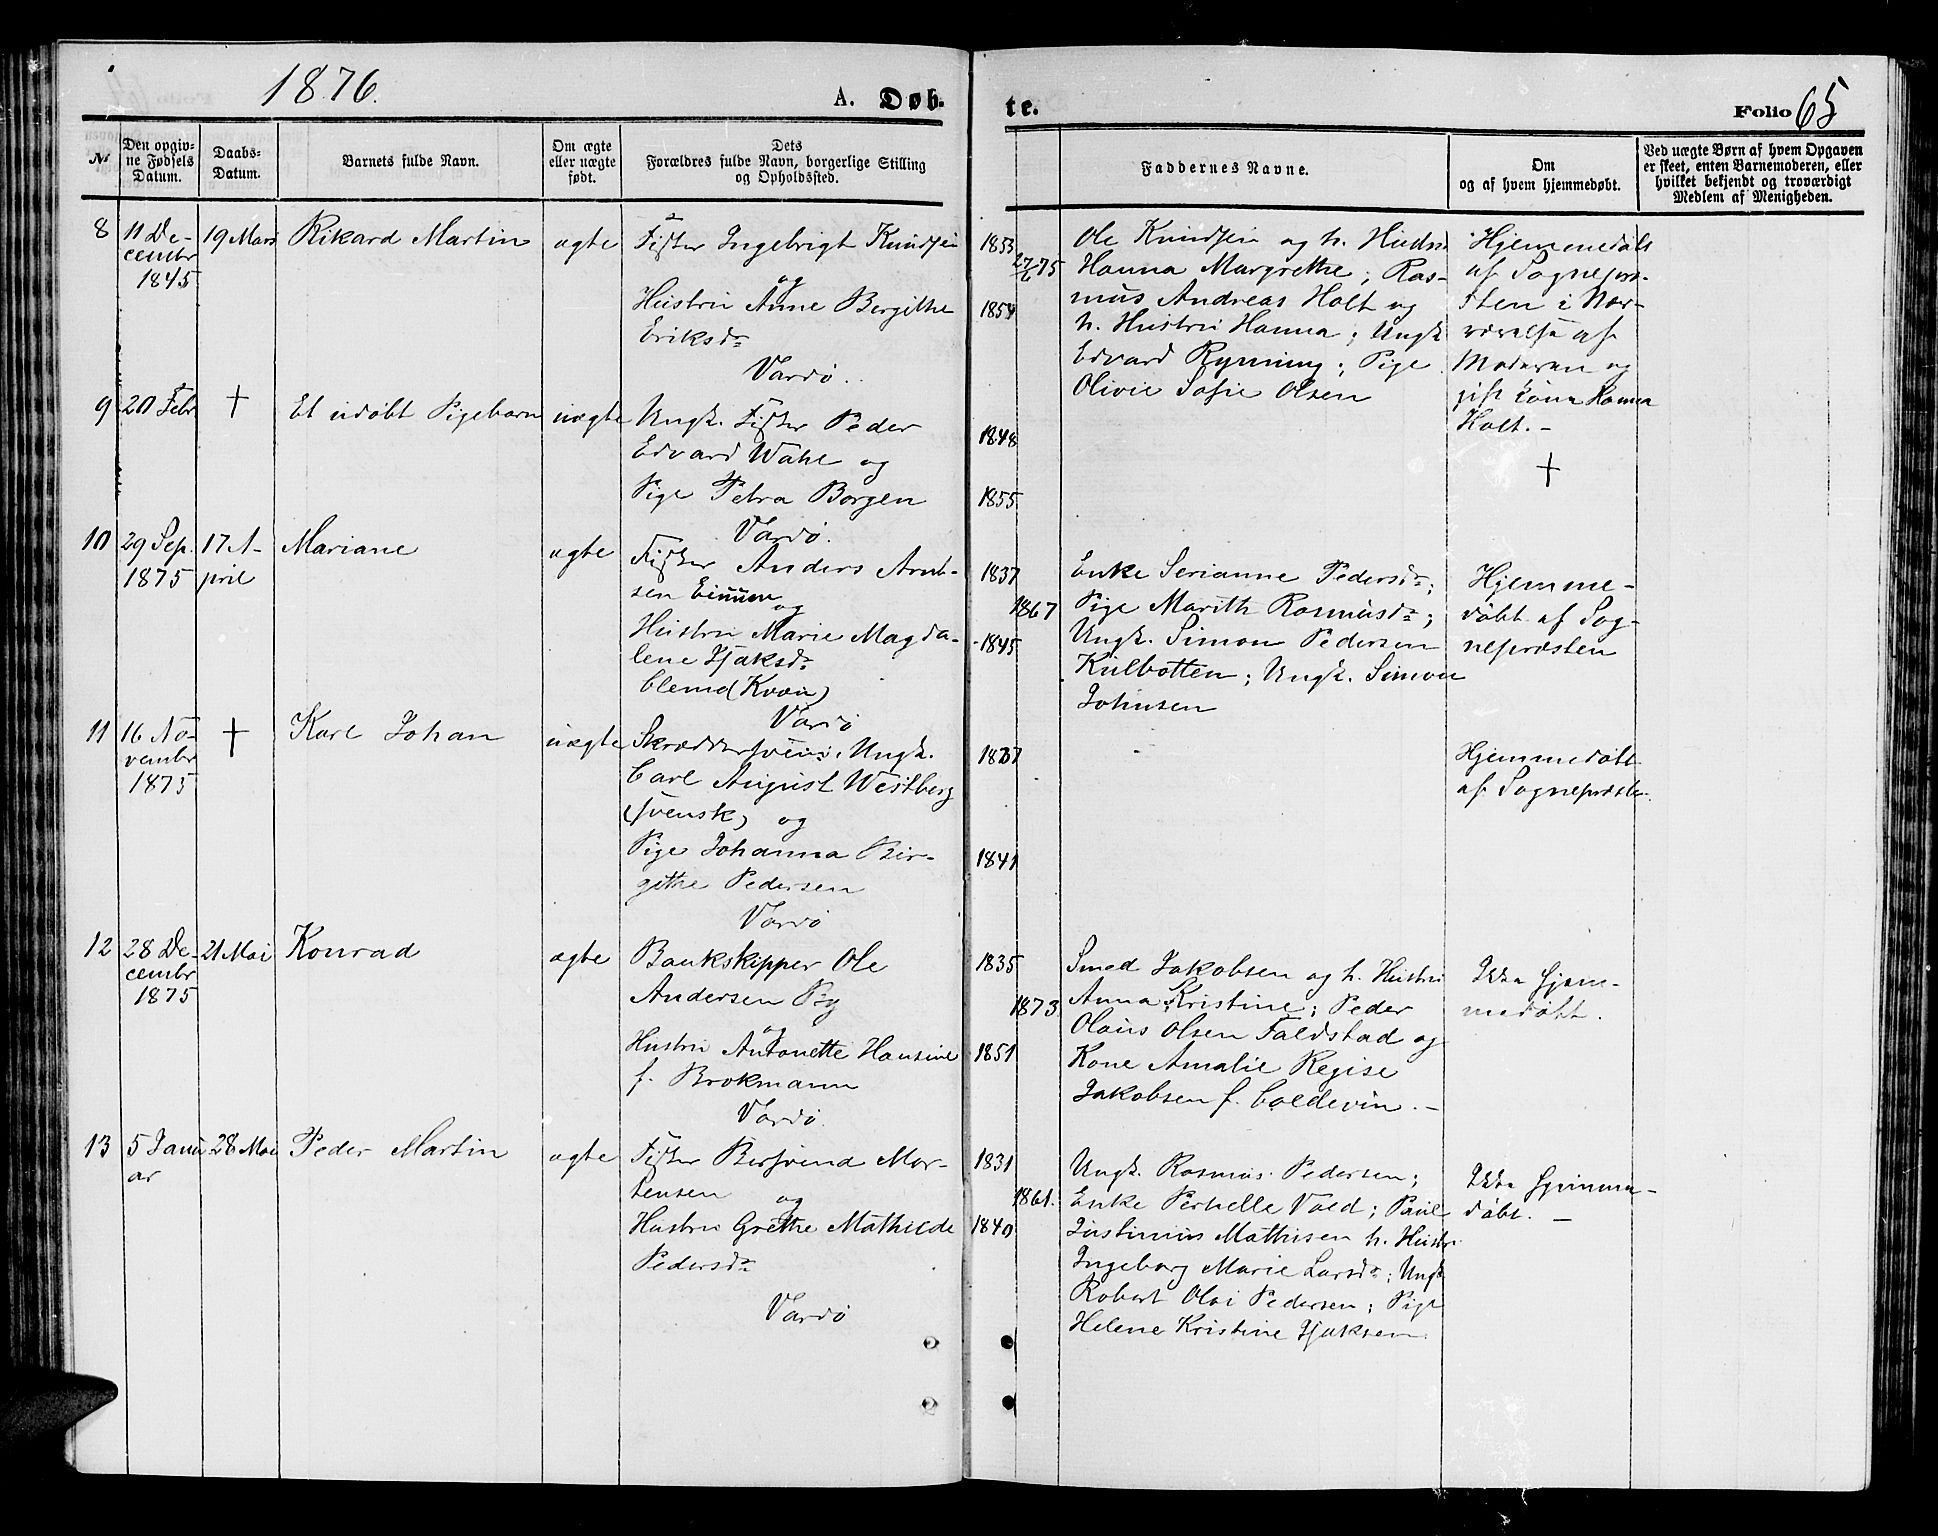 1876.
A. Døb-
te.
Folio 65
№
Den opgiv-
ne Fødsels
Datum.
Daabs-
Datum.
Barnets fulde Navn.
Om ægte
eller uægte
født.
Dets
Forældres fulde Navn, borgerlige Stilling
og Opholdssted.
Faddernes Navne.
Om
og af hvem hjemmedøbt.
Ved uægte Børn af hvem Opgaven
er skeet, enten Barnemoderen, eller
hvilket bekjendt og troværdigt
Medlem af Menigheden.
8
11 De-
cembr
1845
19 Mars
Rikard Martin
ægte
Fisker Ingebrigt Knudsen
og
Hustru Anne Bergithe
Eriksdr
Vardø.
1853
27/6 75
1854
Ole Knudsen og h. Hustru
Hanna Margrethe; Ras-
mus Andreas Holt og
h. Hustru Hanna; Ungk.
Edvard Rynning; Pige
Olivie Sofie Olsen
Hjemmedøbt
af Sognepræ-
sten i Nær-
værelse af
Moderen og
gift Kone Hanna
Holt. -
9
20 Febr
†
Et udøbt Pigebarn
uægte
Ungk. Fisker Peder
Edvard Wahl og
Pige Petra Borgen
Vardø.
1848
1855
†
10
29 Sep.
1875
17 A-
pril
Mariane
ægte
Fisker Anders Arnt-
sen
og
Hustru Marie Magda-
lene Isaksdr
(Kvæn)
Vardø
1837
1867
1845
Enke Serianne Pedersdr;
Pige Marith Rasmusdr;
Ungk. Simon Pedersen
Kulbotten; Ungk. Simon
Johnsen
Hjemme-
døbt af Sog-
nepræsten
11
16 No-
vembr
1875
†
Karl Johan
uægte
Skræddersvend, Ungk.
Carl August Westberg
(svensk) og
Pige Johanna Bir-
githe Pedersen
Vardø
1837
1841
Hjemmedøbt
af Sognepræsten.
12
28 De-
cembr
1875
21 Mai
Konrad
ægte
Bankskipper Ole
Andersen By
og
Hustru Antonette Hansine
f. Brokmann
Vardø.
1835
1873
1851
Smed Jakobsen og h. Hustru
Anna Kristine; Peder
Olaus Olsen Faldstad og
Kone Amalie Regise
Jakobsen f. Coldevin. -
Ikke hjem-
medøbt.
13
5 Janu
ar
28 Mai
Peder Martin
ægte
Fisker Bersvend Mor-
tensen og
Hustru Grethe Mathilde
Pedersdr
Vardø
1831
1861.
1840
Ungk. Rasmus Pedersen;
Enke Pernelle Vold; Paul
Justinus Mathisen h. Hustru
Ingeborg Marie Larsdr; Ungk
Robert Olai Pedersen; Pige
Helene Kristine Isaksen.
Ikke hjemme-
døbt. -